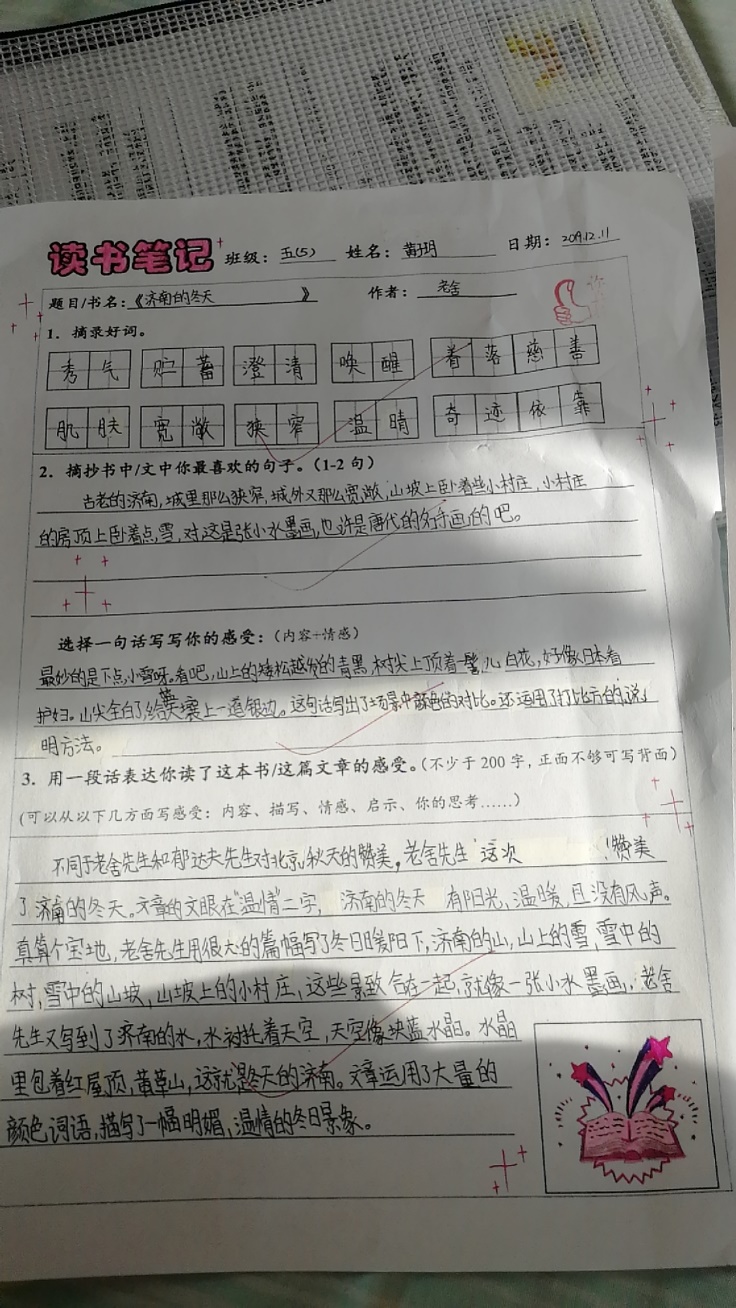 读书笔记 班级：五(5) 姓名：黄玥 日期：2019.12.11
题目/书名：《济南的冬天》 作者：老舍
1．摘录好词。
秀气 贮蓄 澄清 唤醒 着落慈善
肌肤 宽敞 狭窄 温晴 奇迹依靠
2．摘抄书中/文中你最喜欢的句子。（1-2句）
古老的济南,城里那么狭窄,城外又那么宽敞,山坡上卧着些小村庄,小村庄
的房顶上卧着点雪,对这是张小水墨画,也许是唐代的名手画的吧。
选择一句话写写你的感受：（内容+情感）
最妙的是下点小雪呀。看吧,山上的矮松越发的青黑,树尖上顶着一髻儿白花,好像日本看
护妇。山尖全白了,给蓝天镶上一道银边。这句话写出了场景中颜色的对比。还运用了打比方的说
明方法。
3．用一段话表达你读了这本书/这篇文章的感受。（不少于200字，正面不够可写背面）
（可以从以下几方面写感受：内容、描写、情感、启示、你的思考……）
不同于老舍先生和郁达夫先生对北京秋天的赞美,老舍先生这次 赞美
了济南的冬天。文章的文眼在"温情"二字, 济南的冬天 有阳光,温暖,且没有风声。
真算个宝地,老舍先生用很大的篇幅写了冬日暖阳下,济南的山,山上的雪,雪中的
树,雪中的山坡,山坡上的小村庄,这些景致合在一起,就像一张小水墨画,老舍
先生又写到了济南的水,水衬托着天空,天空像块蓝水晶。水晶
里包着红屋顶,黄草山,这就是冬天的济南。文章运用了大量的
颜色词语,描写了一幅明媚,温情的冬日景象。